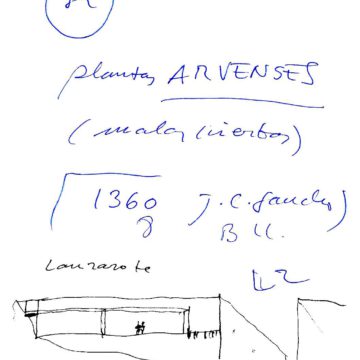 plantas ARVENSES
(malas hierbas)
1360 J.C.
8 B U.
Lanzarote